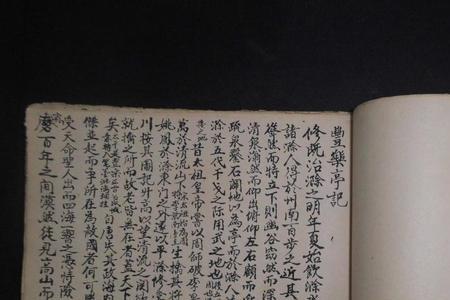 豊樂亭記
修既治滁之明年夏始飲滁
諸滁人得於州南百步之近其
聳然而特立下則幽谷窈然而深
清泉滃然而仰出俯仰左右顧而
疏泉鑿石闢地以為亭而與滁人
滁於五代干戈之際用武之地也
昔太祖皇帝嘗以周師破李
萬於清流山下生擒其將
姚鳳於滁東門之外遂以平滁修
川按其圖記升高以望清流之關
就擒之所而故老皆無在者蓋天下
矣自唐失其政海內
傑並起而爭所在為敵國者何可
受天命聖人出而四海一嚮之憑恃險
磨百年之間漠然徒見高山而